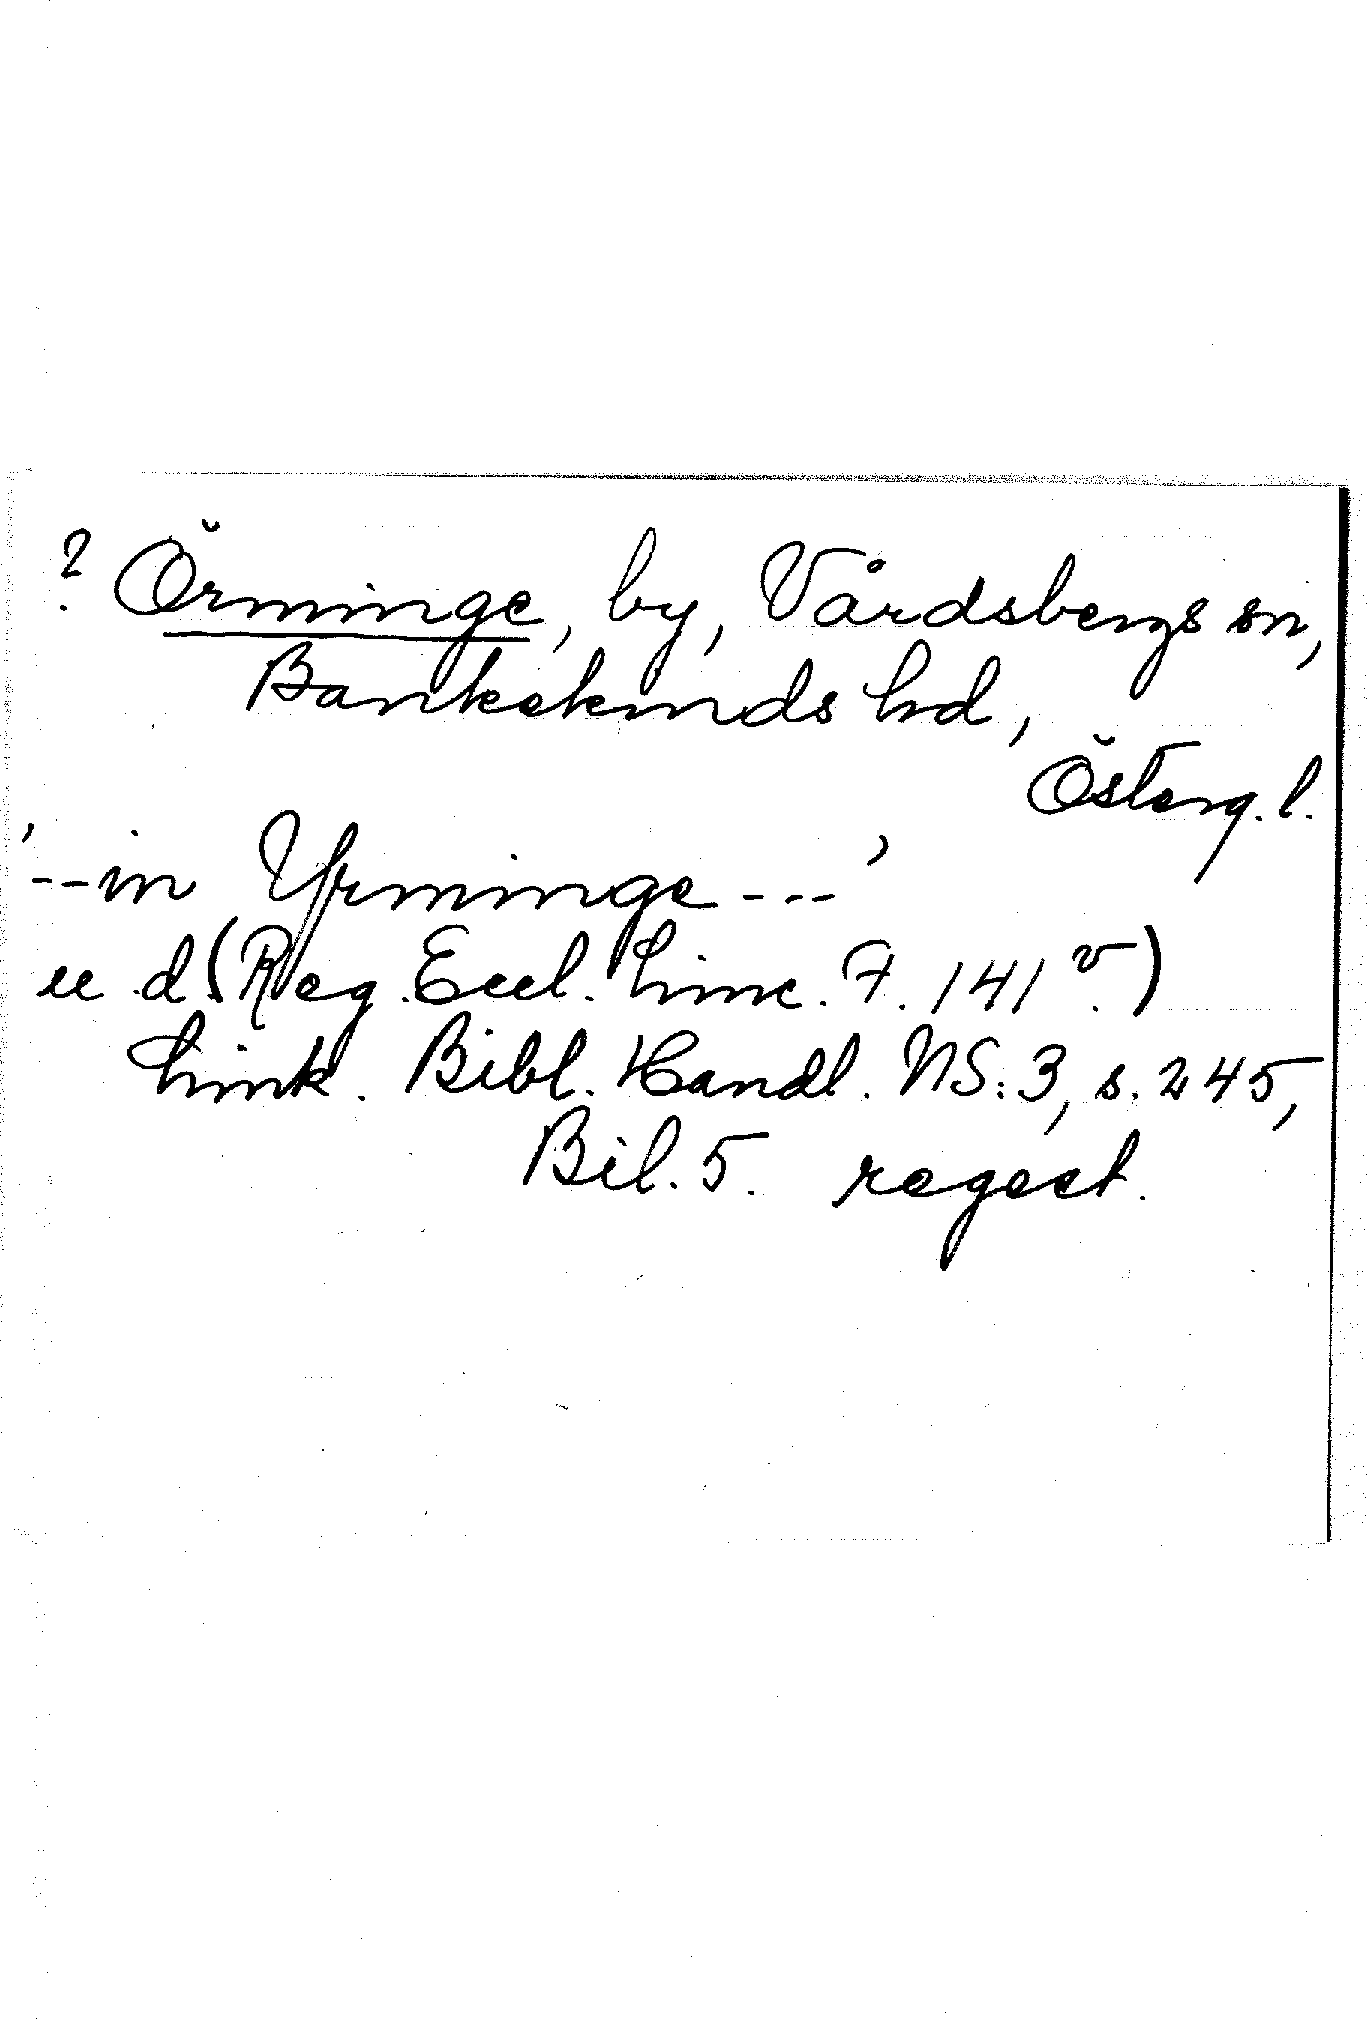 ? Örminge, by, Vårdsbergs sn,
Bankekinds hd,
Österg. l.
'--in Yrminge---'
u d (Reg. Eccl. Linc. F. 141 v.)
Link. Bibl. Handl. NS: 3, s. 245,
Bil. 5. regest.